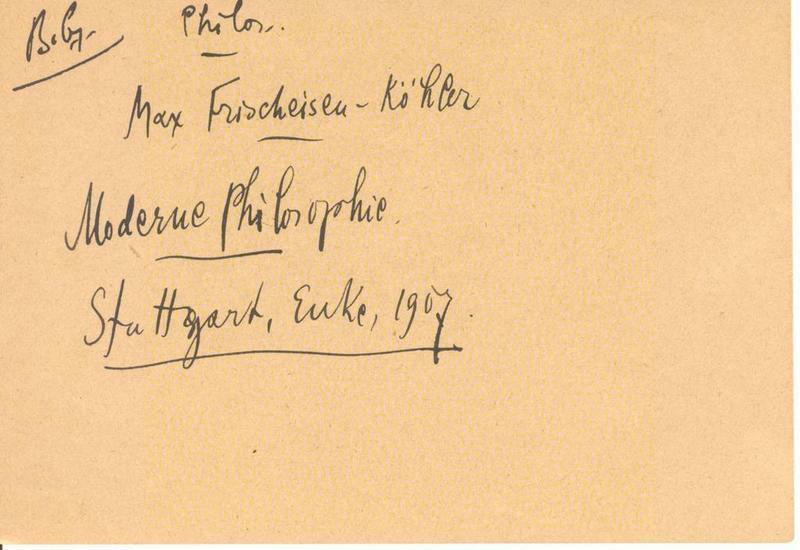 Philos.
Max Frischeisen-Köhler
Moderne Philosophie.
Stuttgart, Enke, 1907.